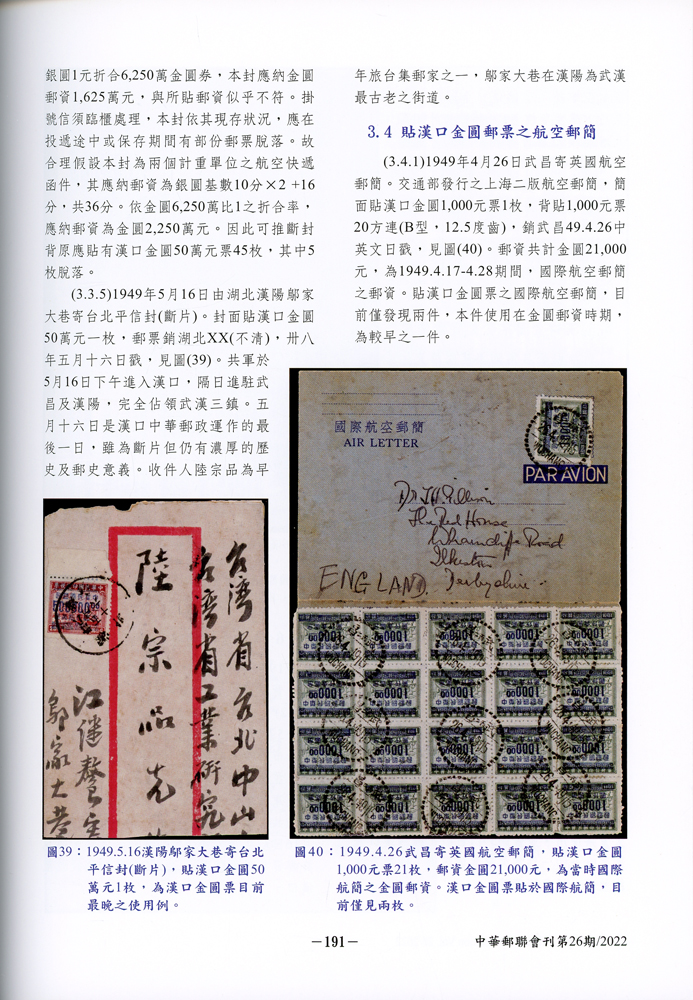 銀圓1元折合6,250萬金圓券，本封應納金圓
郵資1,625萬元，與所貼郵資似乎不符。掛
號信須臨櫃處理，本封依其現存狀況，應在
投遞途中或保存期間有部份郵票脫落。故
合理假設本封為兩個計重單位之航空快遞
函件，其應納郵資為銀圓基數10分×2 +16
分，共36分。依金圓6,250萬比1之折合率，
應納郵資為金圓2,250萬元。因此可推斷封
背原應貼有漢口金圓50萬元票45枚，其中5
枚脫落。
(3.3.5)1949年5月16日由湖北漢陽鄔家
大巷寄台北平信封(斷片)。封面貼漢口金圓
50萬元一枚，郵票銷湖北XX(不清)，卅八
年五月十六日戳，見圖(39)。共軍於
5月16日下午進入漢口，隔日進駐武
昌及漢陽，完全佔領武漢三鎮。五
月十六日是漢口中華郵政運作的最
後一日，雖為斷片但仍有濃厚的歷
史及郵史意義。收件人陸宗品為早
年旅台集郵家之一，鄔家大巷在漢陽為武漢
最古老之街道。
3.4 貼漢口金圓郵票之航空郵簡
(3.4.1)1949年4月26日武昌寄英國航空
郵簡。交通部發行之上海二版航空郵簡，簡
面貼漢口金圓1,000元票1枚，背貼1,000元票
20方連(B型，12.5度齒)，銷武昌49.4.26中
英文日戳，見圖(40)。郵資共計金圓21,000
元，為1949.4.17-4.28期間，國際航空郵簡
之郵資。貼漢口金圓票之國際航空郵簡，目
前僅發現兩件，本件使用在金圓郵資時期，
為較早之一件。
國際航空郵簡
AIR LETTER
PAR AVION
The Red House
Road
Ilkeston
ENGLAND. Derbyshire.
台灣省台北中山
台灣省工業研究
陸宗品先
鄔家大巷
圖39：1949.5.16漢陽鄔家大巷寄台北
平信封(斷片)，貼漢口金圓50
萬元1枚，為漢口金圓票目前
最晚之使用例。
圖40：1949.4.26武昌寄英國航空郵簡，貼漢口金圓
1,000元票21枚，郵資金圓21,000元，為當時國際
航簡之金圓郵資。漢口金圓票貼於國際航簡，目
前僅見兩枚。
－191－
中華郵聯會刊第26期/2022